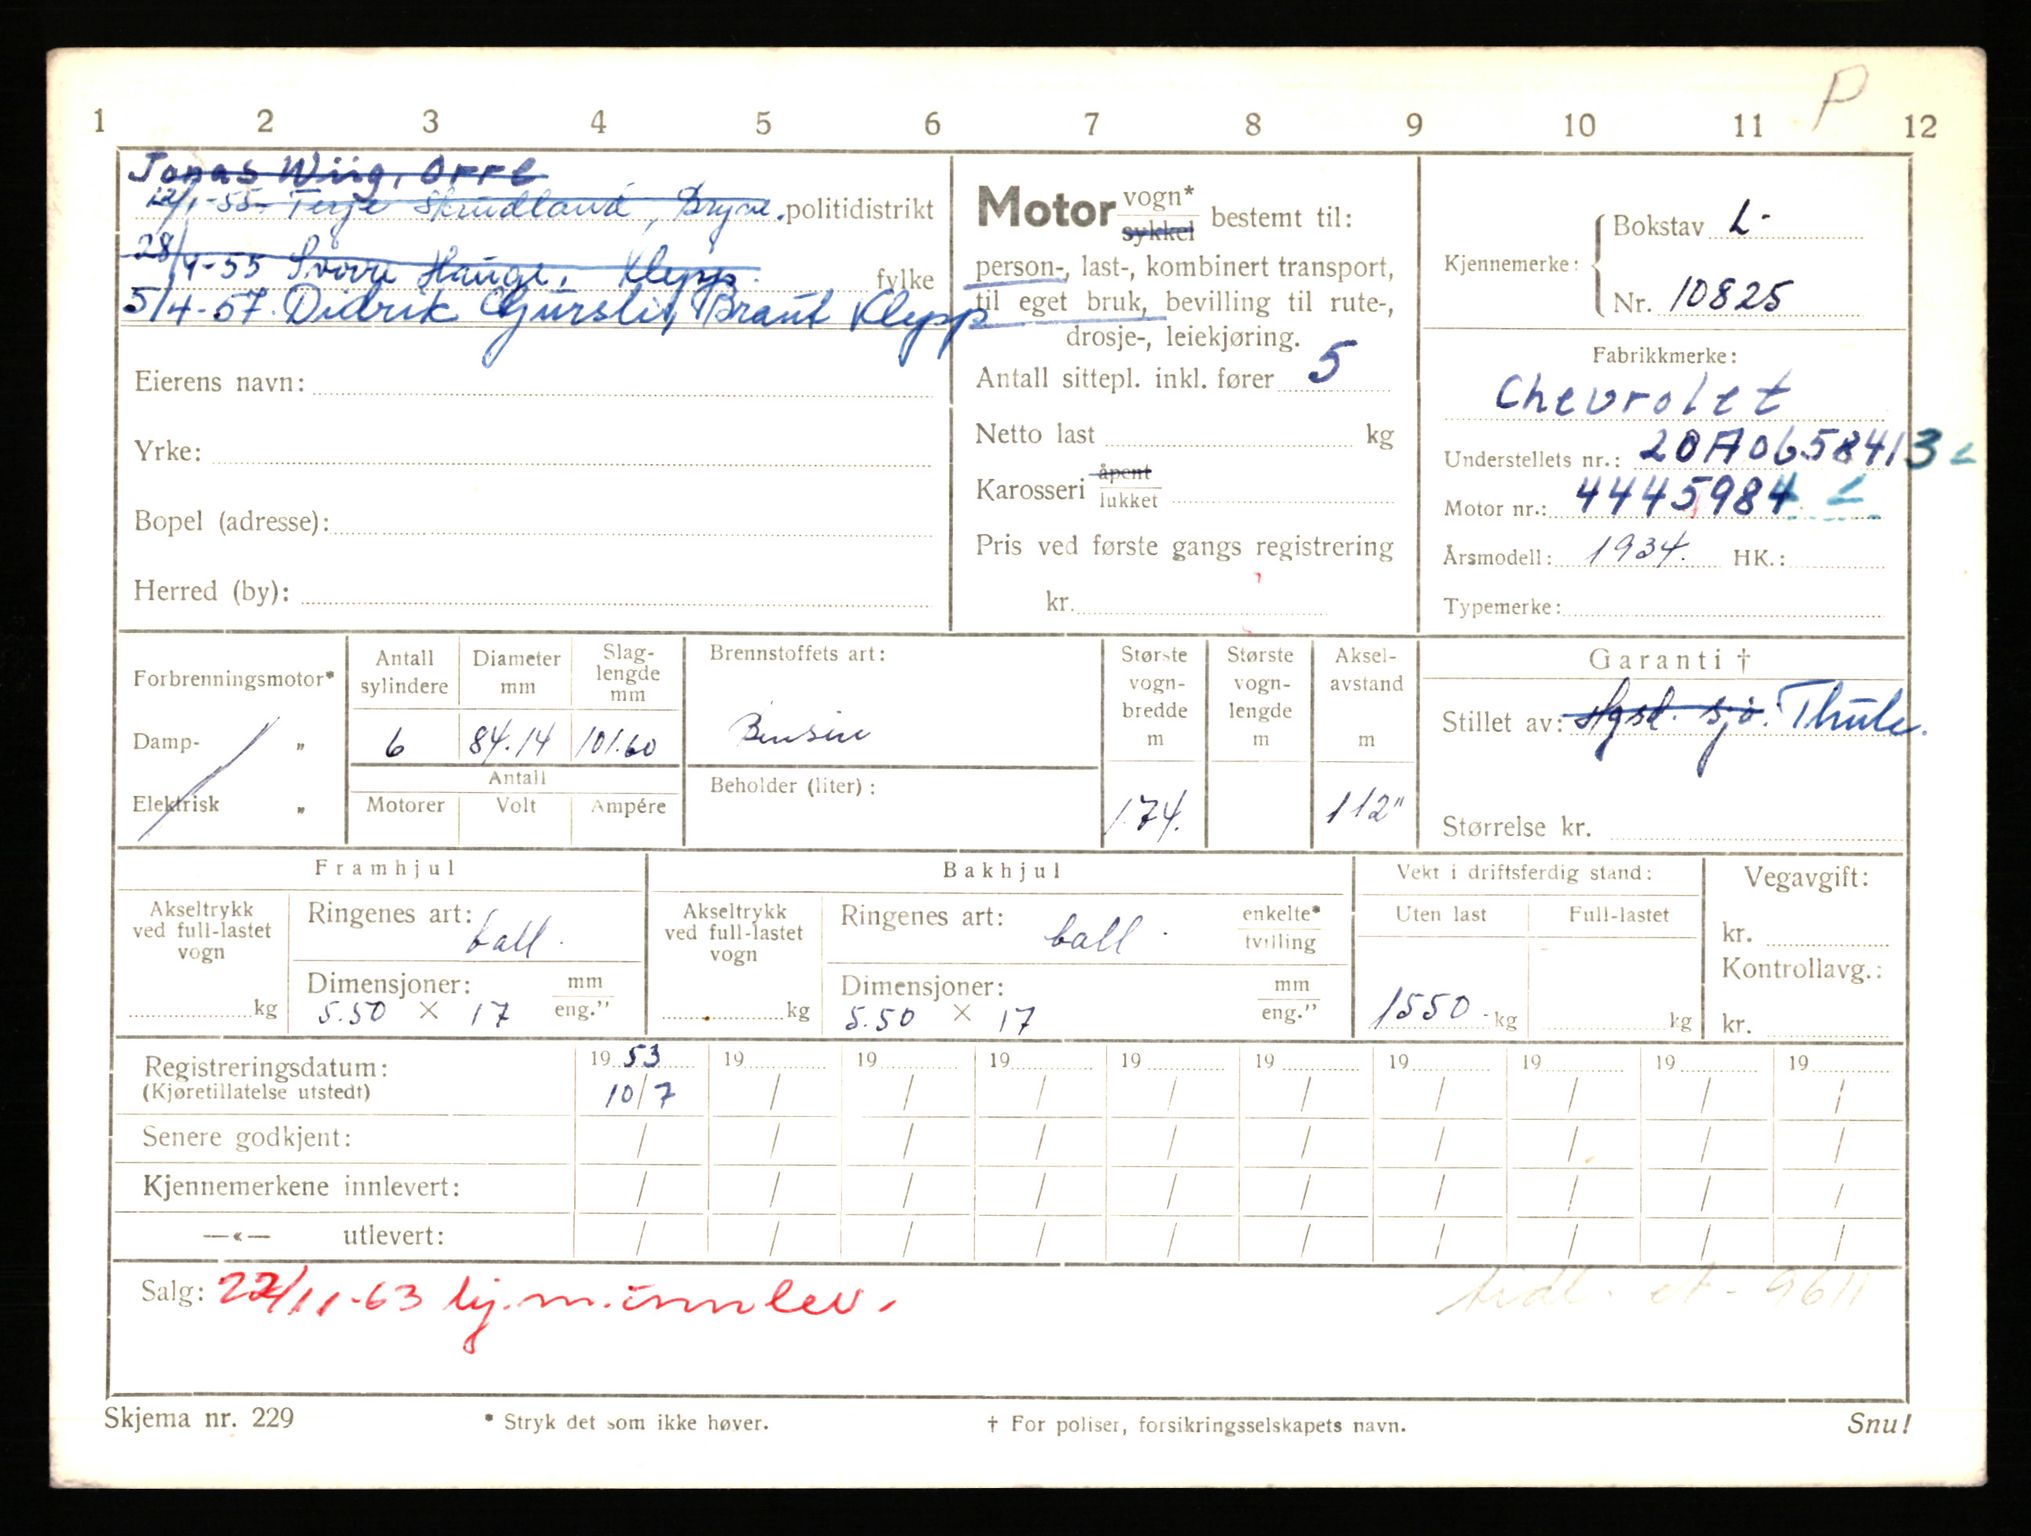 P
1 2 3 4 5 6 7 8 9 10 11 12
Jonas Wiig, Orre
12/1-55. Terje Skrudland, Bryne. politidistrikt
28/4-55 Svorre Hauge, Klepp. fylke
5/4-57. Didrik Gjurslit, Braut Klepp
Eierens navn:
Yrke:
Bopel (adresse):
Herred (by):
Motor vogn* sykkel bestemt til:
person-, last-, kombinert transport,
til eget bruk, bevilling til rute-,
drosje-, leiekjøring.
Antall sittepl. inkl. fører 5
Netto last kg
Karosseri åpent lukket
Pris ved første gangs registrering
kr.
Kjennemerke:
Bokstav L-
Nr. 10825
Fabrikkmerke:
Chevrolet
Understellets nr.: 20A0658413 L
Motor nr.: 4445984 L
Årsmodell: 1934. HK.:
Typemerke:
Forbrenningsmotor*
Damp- „
Elektrisk „
Antall sylindere
6
Diameter mm
84.14
Slag-lengde mm
101.60
Antall
Motorer Volt Ampére
Brennstoffets art:
Bensin
Beholder (liter):
Største vogn-bredde m
1.74.
Største vogn-lengde m
Aksel-avstand m
112"
Garanti †
Stillet av: Agst. sjø. Thule.
Størrelse kr.
Framhjul
Akseltrykk ved full-lastet vogn
kg
Ringenes art: ball.
Dimensjoner: mm eng."
5.50 × 17
Bakhjul
Akseltrykk ved full-lastet vogn
kg
Ringenes art: ball. enkelte* tvilling
Dimensjoner: mm eng."
5.50 × 17
Vekt i driftsferdig stand:
Uten last Full-lastet
1550 kg kg
Vegavgift:
kr.
Kontrollavg.:
kr.
Registreringsdatum: 19 53 19 19 19 19 19 19 19 19 19
(Kjøretillatelse utstedt) 10/7 / / / / / / / / /
Senere godkjent: / / / / / / / / / /
Kjennemerkene innlevert: / / / / / / / / / /
—«— utlevert: / / / / / / / / / /
Salg: 22/11-63 kj.m.innlev.
tidl. et - 9611
Skjema nr. 229 * Stryk det som ikke høver. † For poliser, forsikringsselskapets navn. Snu!